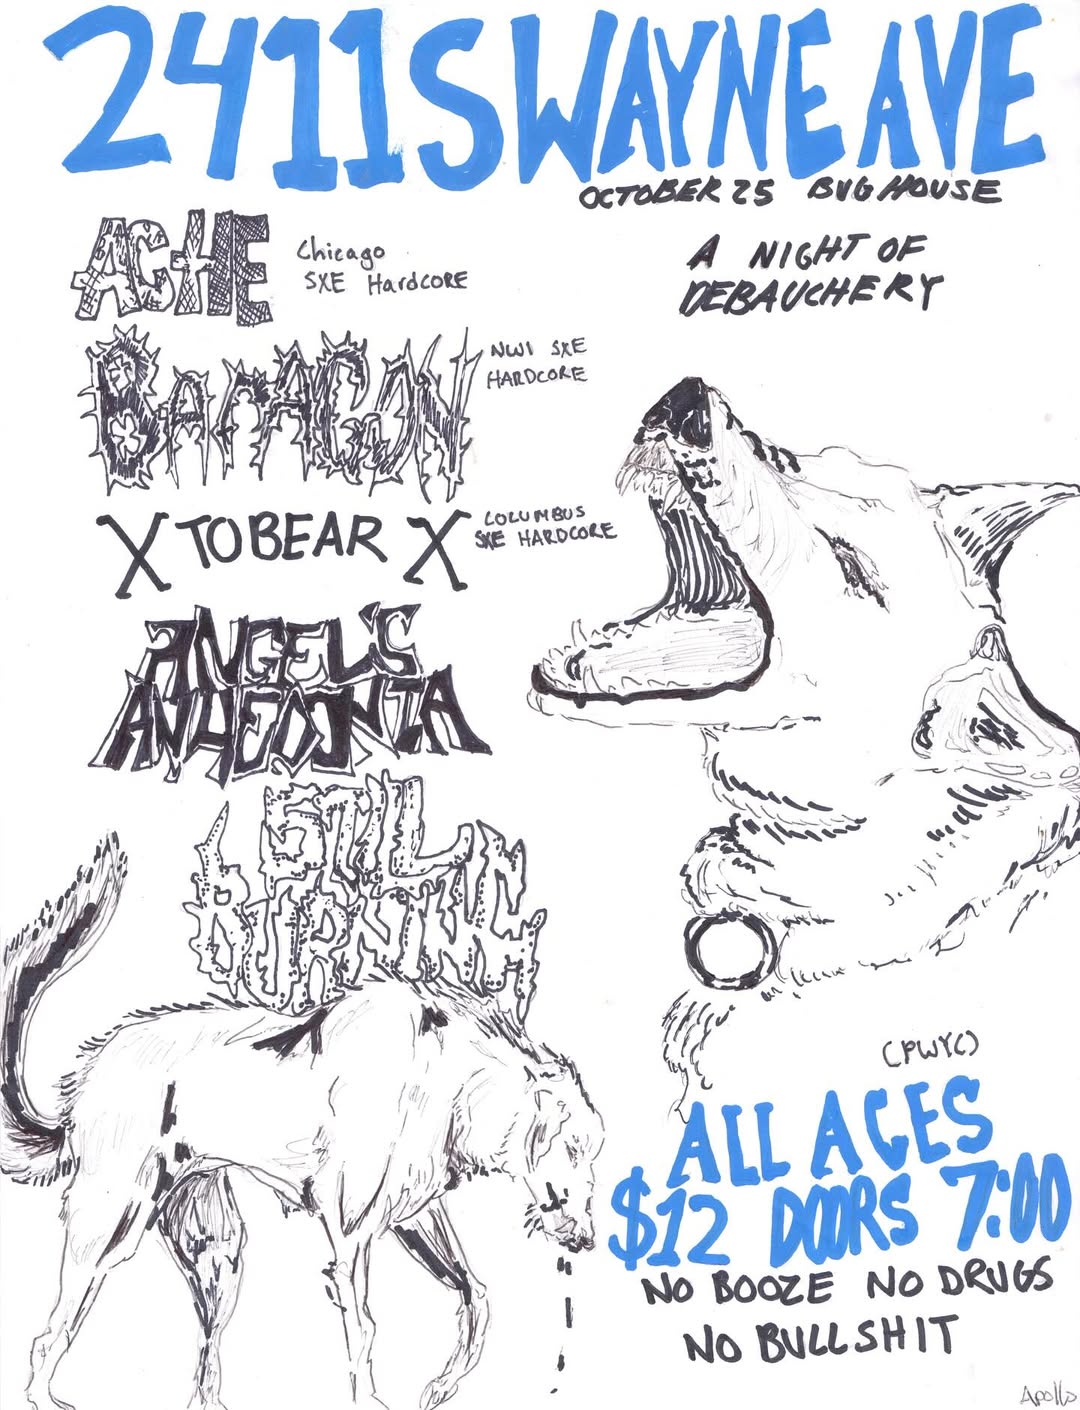 2411 S WAYNE AVE
OCTOBER 25 BUG HOUSE
A NIGHT OF
DEBAUCHERY
ACHE
Chicago
SXE Hardcore
BARAGON
NWI SXE
HARDCORE
X TO BEAR X
COLUMBUS
SXE HARDCORE
ANGEL'S
ANHEDONIA
STILL
BURNING
(PWYC)
ALL AGES
$12 DOORS 7:00
NO BOOZE NO DRUGS
NO BULLSHIT
Apollo